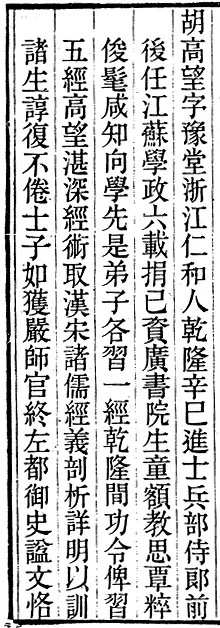 胡高望字豫堂浙江仁和人乾隆辛巳進士兵部侍郞前
後任江蘇學政六載捐己貲廣書院生童額敎思覃粹
俊髦咸知向學先是弟子各習一經乾隆間功令俾習
五經高望湛深經術取漢宋諸儒經義剖析詳明以訓
諸生諄復不倦士子如獲嚴師官終左都御史諡文恪